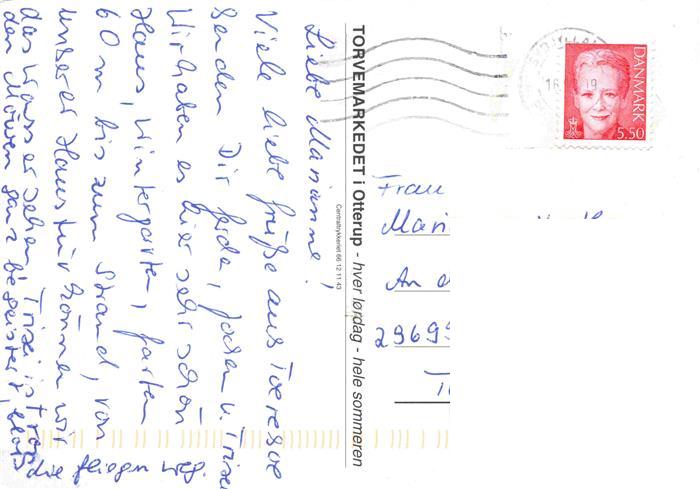 Liebe Marianne!
Viele liebe Grüße aus Toeresoe
senden Dir Gerda, Jochen u. Trixi
Wir haben es hier sehr schön
Haus, Wintergarten, Garten
60 m bis zum Strand, von
unserer Haustür können wir
das Wasser sehen. Trixi ist von
den Möwen ganz begeistert, bloß
die fliegen weg.
TORVEMARKEDET i Otterup - hver lørdag - hele sommeren
Centraltrykkeriet 66 12 11 43
DANMARK
5.50
16
19
Frau
Mari
An d
29699